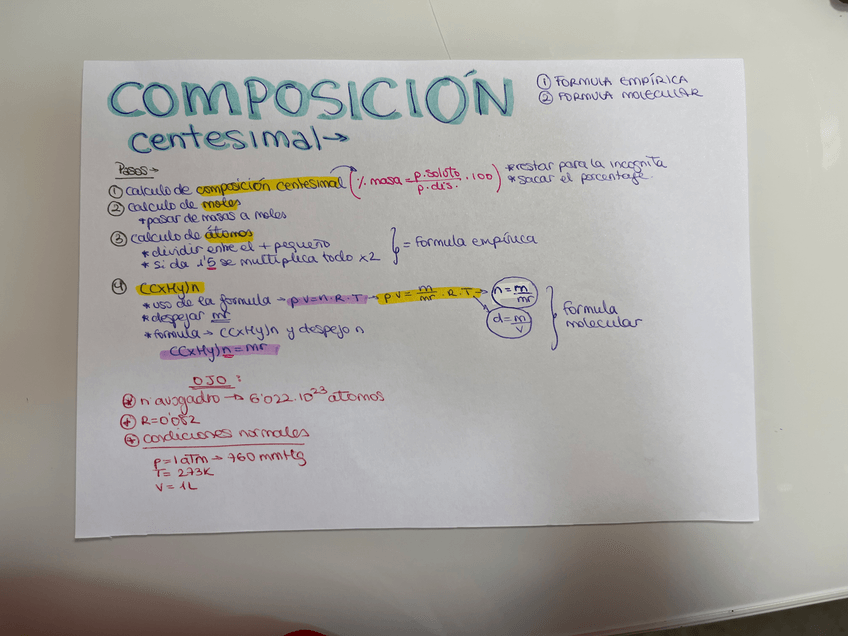 COMPOSICIÓN
centesimal →
① FORMULA EMPÍRICA
② FORMULA MOLECULAR
Pasos →
① calculo de composición centesimal (% masa = p.soluto / p.dis. · 100) *restar para la incognita
*sacar el porcentage.
② calculo de moles
*pasar de masas a moles
③ calculo de átomos
*dividir entre el + pequeño
*si da 1'5 se multiplica todo x2
} = Formula empírica
④ (CxHy)n
*uso de la formula → p·V=n·R·T → p·V= m/mr · R·T → n = m/mr
*despejar mr
d = m/v
*formula → (CxHy)n y despejo n
(CxHy)n = mr
} formula molecular
OJO:
* n avogadro → 6'022·10²³ atomos
* R=0'082
* condiciones normales
P = 1 atm → 760 mmHg
T = 273K
V = 1L